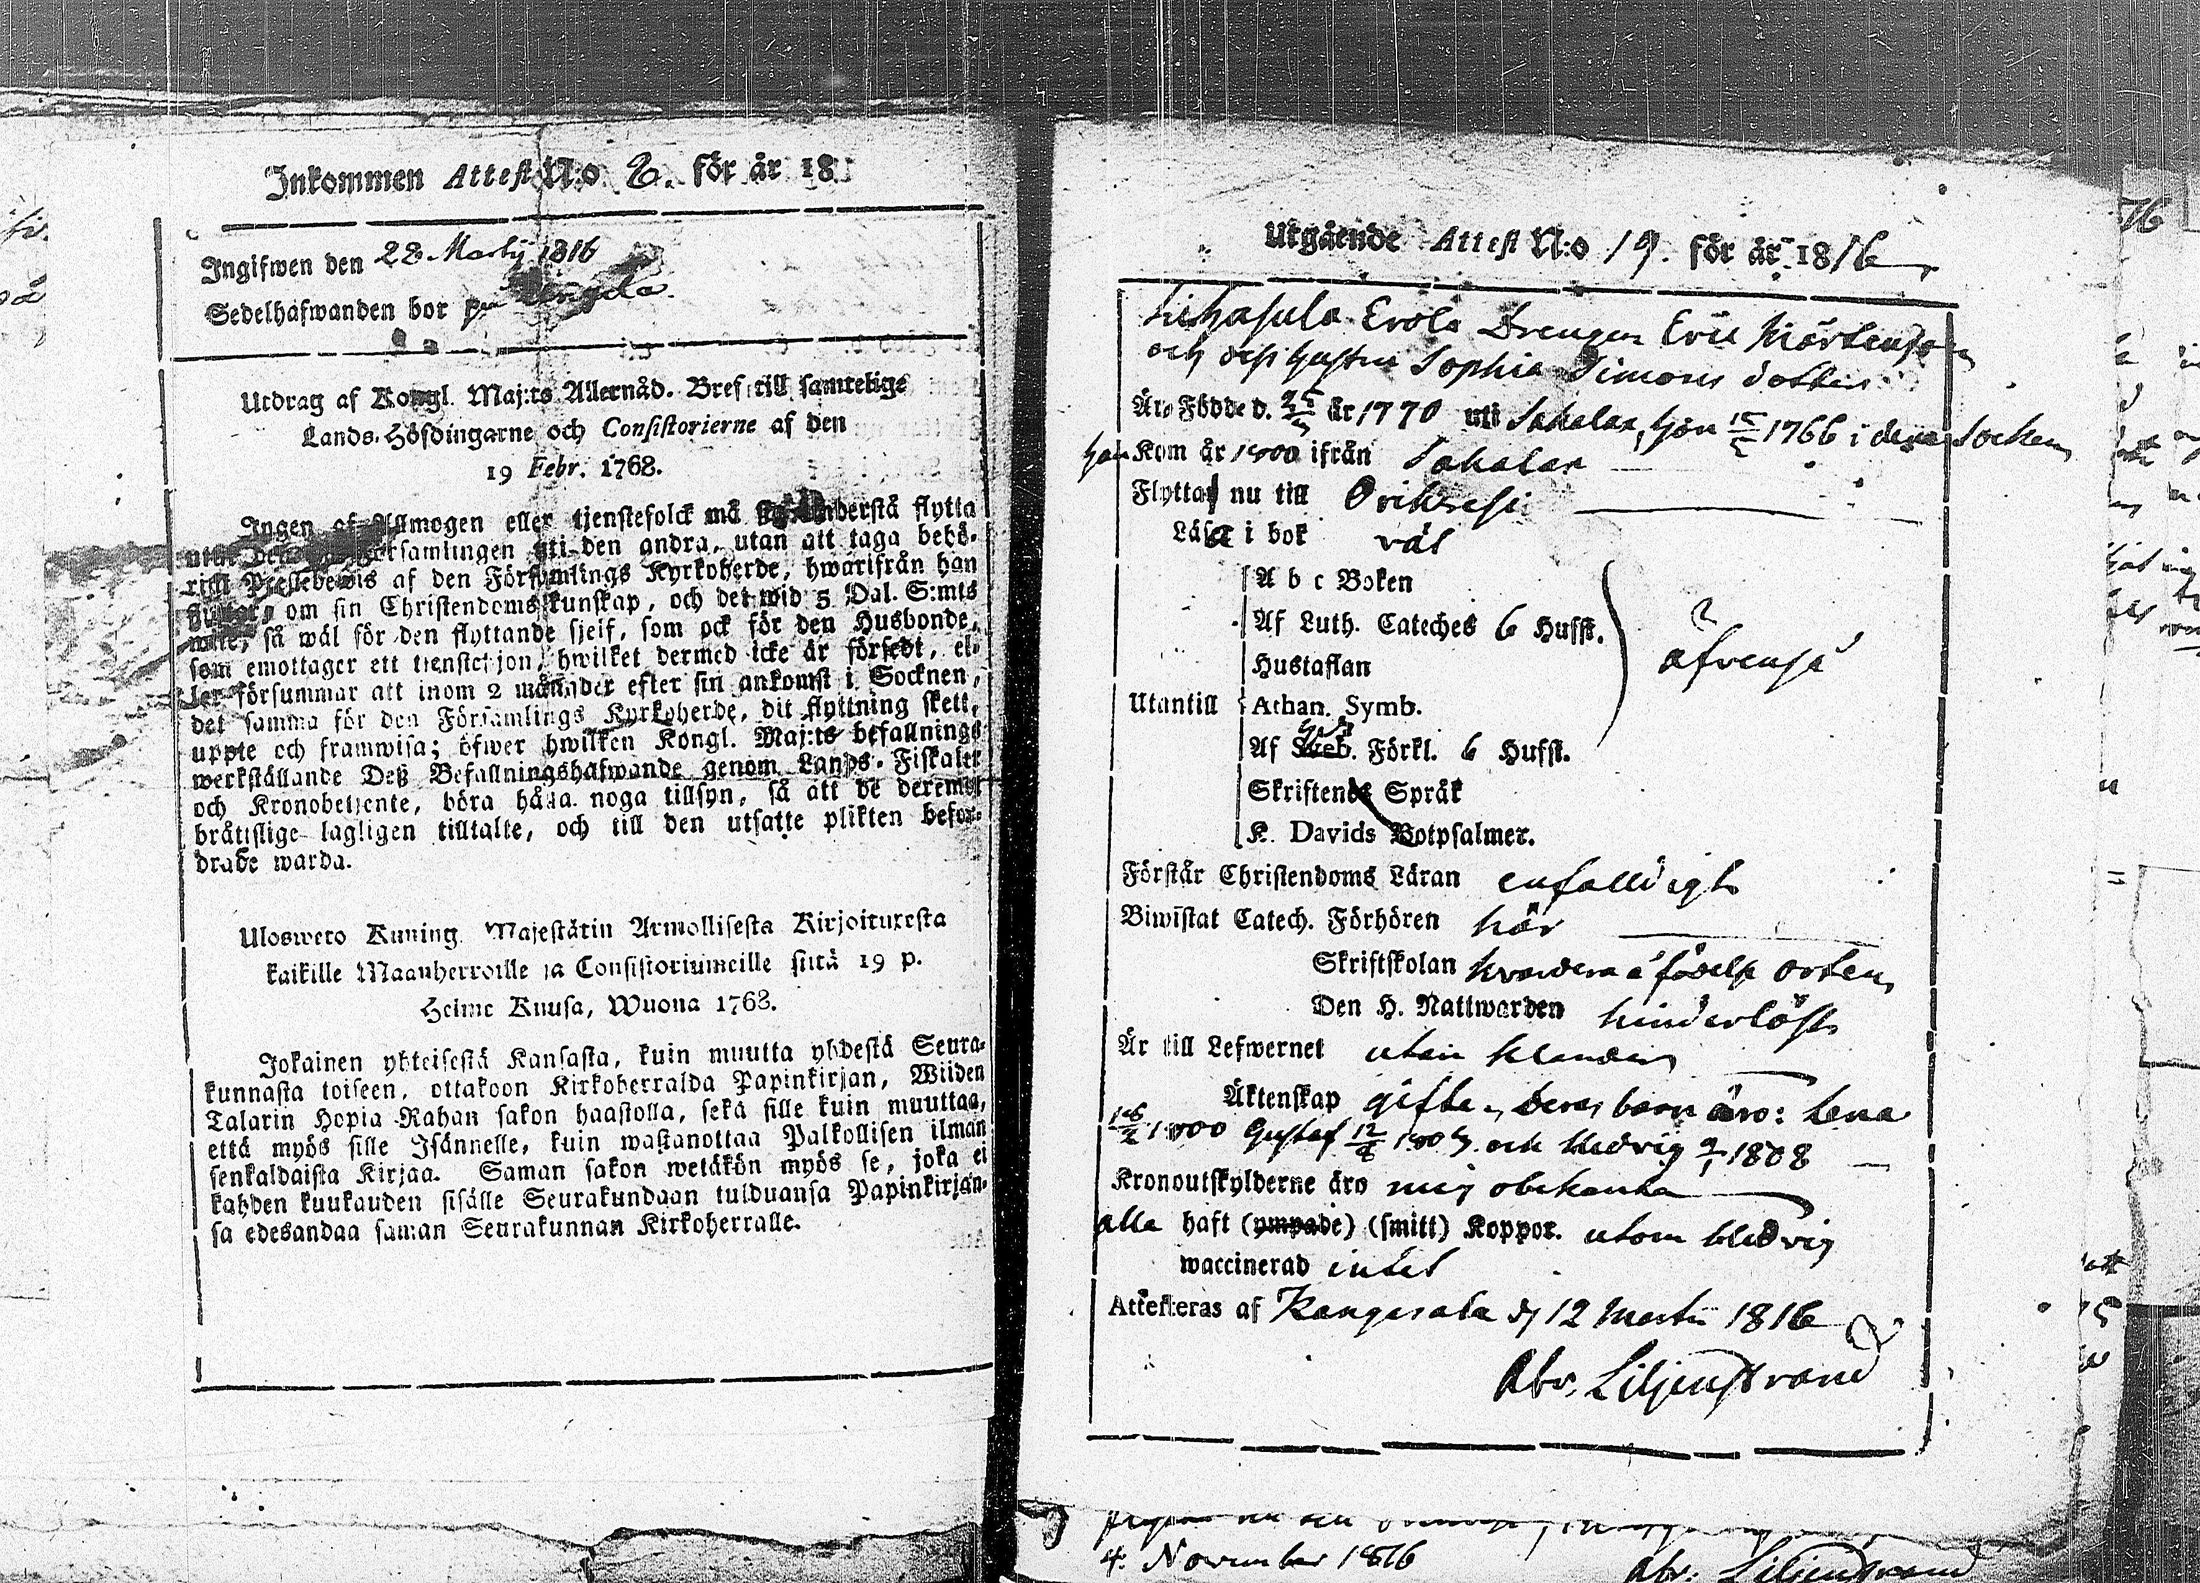 Inkommen Attest N:o 2. för år 18
Ingifwen den 28 Martij 1816
Sedelhafwanden bor på
Utdrag af Kongl. Maj:ts Allernåd. Bref till samtelige
Lands-Höfdingarne och Consistorierne af den
19 Febr. 1768.
Ingen af Allmogen eller tjenstefolck må understå flytta
församlingen uti den andra, utan att taga behö-
rigt Prestebewis af den Församlings Kyrkoherde, hwarifrån han
flyttar, om sin Christendoms kunskap, och det wid 5 Dal. S:mts
wite, så wäl för den flyttande sjelf, som ock för den Husbonde,
som emottager ett tienstehjon, hwilket dermed icke är försedt, el-
ler försummar att inom 2 månader efter sin ankomst i Socknen,
det samma för den Församlings Kyrkoherde, dit flyttning skett,
uppte och framwisa; öfwer hwilken Kongl. Maj:ts befallnings
werkställande Deß Befallningshafwande genom Lands-Fiskaler
och Kronobetjente, böra hålla noga tillsyn, så att de deremot
bråtislige lagligen tilltalte, och till den utsatte plikten befor-
drade warda.
Ulosweto Kuning. Majestätin Armollisesta Kirjoituxesta
kaikille Maanherroille ja Consistoriumeille siitä 19 p.
Helme Kuusa, Wuona 1768.
Jokainen yhteisestä Kansasta, kuin muutta yhdestä Seura-
kunnasta toiseen, ottakoon Kirkoherralda Papinkirjan, Wiiden
Talarin Hopia-Rahan sakon haastolla, sekä sille kuin muuttaa,
että myös sille Isännelle, kuin wastanottaa Palkollisen ilman
senkaldaista Kirjaa. Saman sakon wetäkön myös se, joka ei
kahden kuukauden sisälle Seurakundaan tulduansa Papinkirjan-
sa edesandaa saman Seurakunnan Kirkoherralle.
Utgående Attest N:o 19. för år 1816
Lihasula Erola Drengen Eric Mårtensson
och dess hustru Sophia Simons dotter
Äro Födde d. 25 år 1770 uti Sahalax, hon 15 1766 i denna Socken
han Kom år 1800 ifrån Sahalax
Flytta nu till Orihvesi
Läsa i bok väl
A b c Boken
Af Luth. Cateches 6 Hufst.
Hustaflan
Utantill Athan. Symb.
Af Sveb. Förkl. 6 Hufst.
Skriftenes Språk
K. Davids Botpsalmer.
äfvenså
Förstår Christendoms Läran enfalldigt
Biwistat Catech. Förhören här
Skriftskolan hvardera å födelse orten
Den H. Nattwarden hinderlöst
Är till Lefwernet utan klander
Äktenskap gifte, deras barn äro: Lena
1800 Gustaf 12 och Hedvig 9/1 1808
Kronoutskylderne äro mig obekanta
alla haft (ympade) (smitt) Koppor. utom Hedvig
waccinerad intet
Attesteras af Kangasala d 12 Martii 1816
Abr. Liljenstrand
4. November 1816
Abr: Liljenstrand